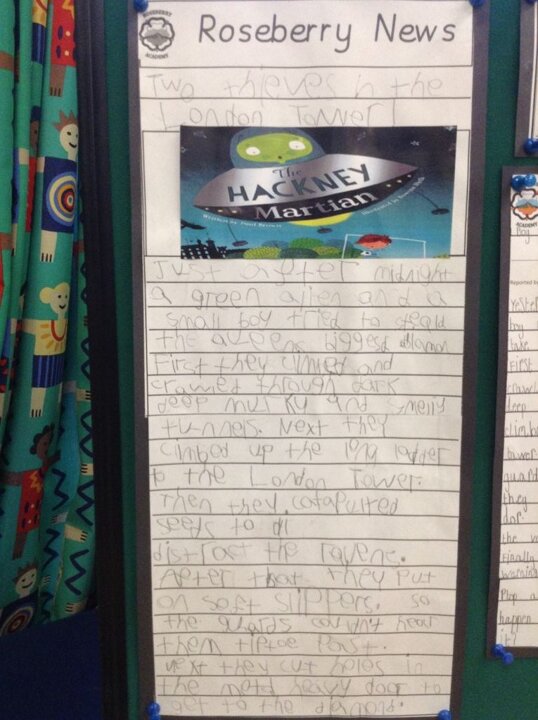 ROSEBERRY
ACADEMY
Roseberry News
Two thieves in the
London Tower!
The
HACKNEY
Martian
Written by Paul Brown
Illustrated by
Just after midnight
a green alien and a
small boy tried to steald
the biggesd
First they climed and
crawled through dark
deep mur ky and smelly
tunnels. Next they
cimbed up the long ladder
to the London Tower.
Then they catapulted
seeds to di
distract the ravens.
After that they put
on soft slippers. so
the guards couldn't hear
them tiptoe past.
next they cut holes in
the metd heavy door to
get to the
Reported by
Yester
boy
take
First
crawl
deep
climb
tower
guard
they
dor
the
Finally
Plop a
happen
it!